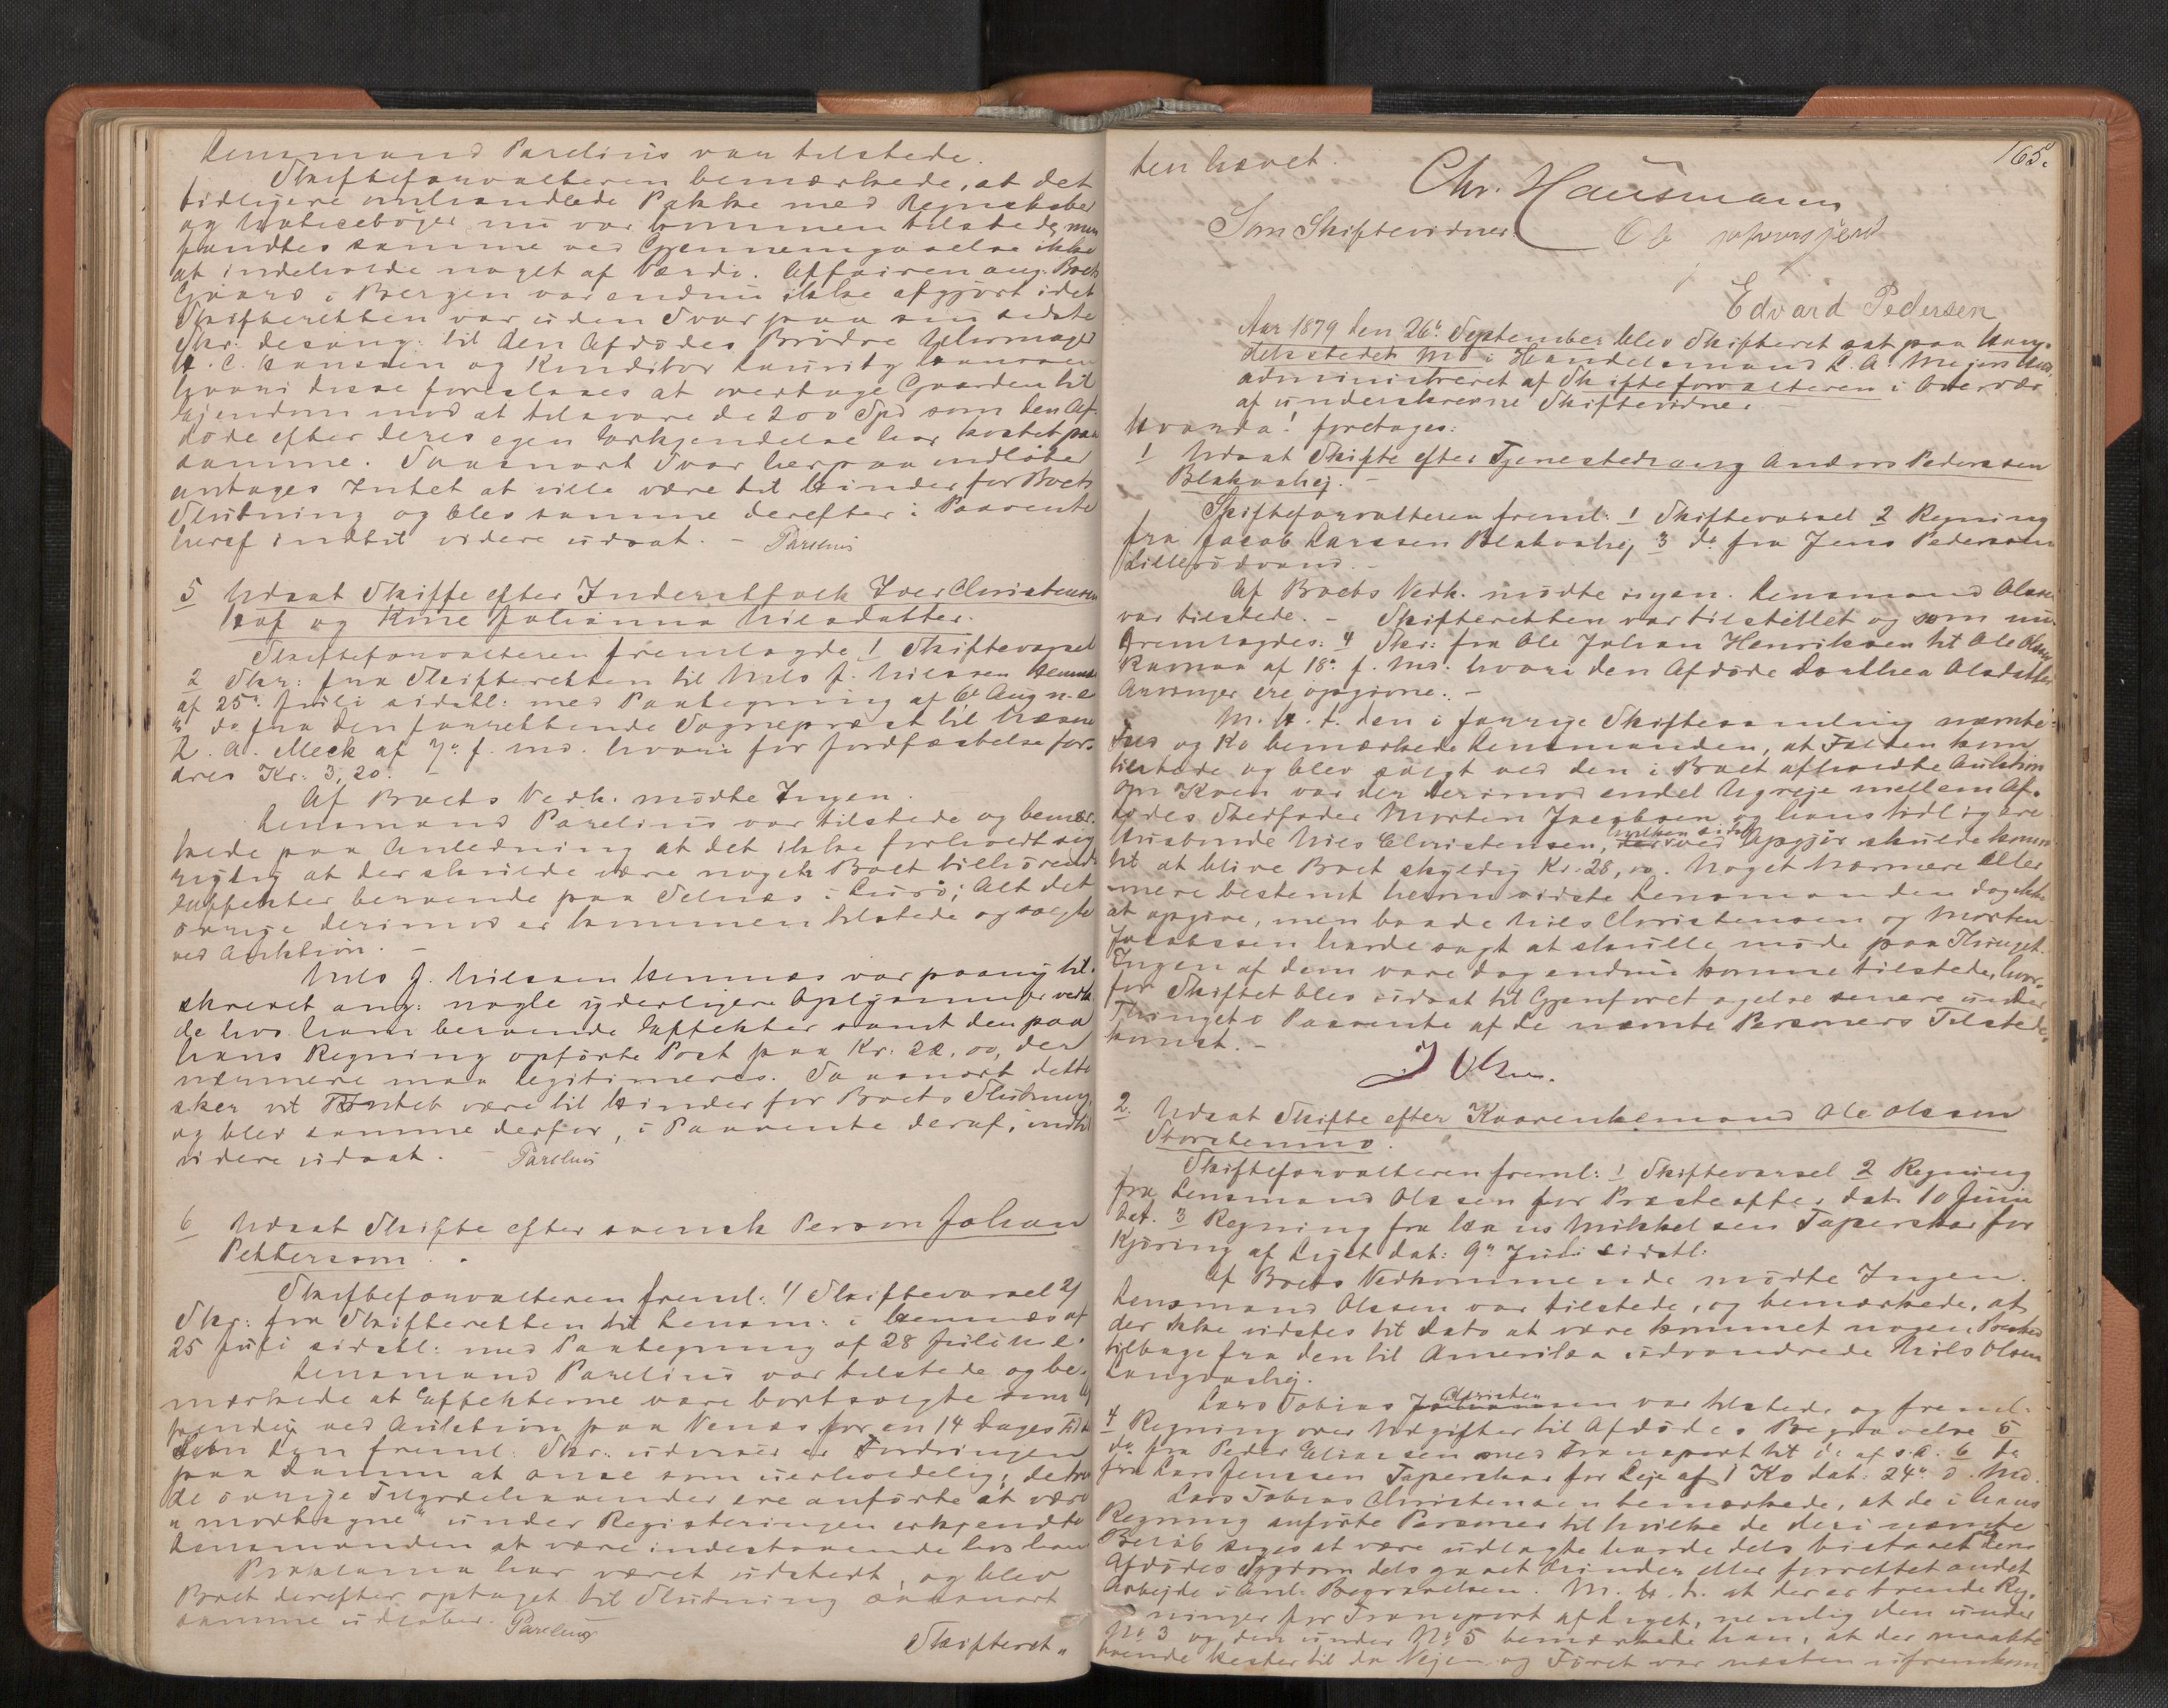 Lensmand Parelius var tilstede.
Skifteforvalteren bemærkede, at det
tidligere omhandlede Pakke med Regnskaber
og Noticebøger nu var kommen tilstede, men
fandtes samme ved Gjennemgaaelse ikke
at indeholde noget af Værdi. Affairen ang: Boets
Gaard i Bergen var endnu ikke afgjort idet
Skifteretten var uden Svar paa sin sidste
Skr: desang: til den Afdødes Brødre Uhrmager
H. C. Hanssen og Konditor Lauritz Hanssen
hvori disse foreslaaes at overtage Gaarden til
Ejendom mod at tilsvare de 200 Spd som den Af-
døde efter deres egen Erkjendelse har kostet paa
samme. Saasnart Svar herpaa indløber
antages Intet at ville være til Hinder for Boets
Slutning og blev samme derefter i Paavente
heraf indtil videre udsat. - Parelius
5 Udsat Skifte efter Inderstfolk Iver Christensen
Hof og Kone Johanna Nilsdatter.
Skifteforvalteren fremlagde 1 Skiftevarsel
2 Skr: fra Skifteretten til Nils J. Nilssen Hemnæs
af 25de Juli sidstl: med Paategning af 6te Aug n. e
do fra den forrettende Sognepræst til
L. A. Meek af 7de f. Md. hvori for Jordfæstelse for-
dres Kr: 3,20. -
Af Boets Vedk. mødte Ingen.
Lensmand Parelius var tilstede og bemær-
kede paa Anledning at det ikke forholdt sig
rigtig at der skulde være noget Boet tilhørende
Effekter beroende paa Selnæs i Lurö; Alt det
øvrige derimod er kommen tilstede og solgte
ved Auktion. -
Nils J. Nilssen Hemnæs var paany til-
skrevet ang: nogle yderligere Oplysninger vedk.
de hos ham beroende Effekter samt den paa
hans Regning opførte Post paa Kr: 22,00, der
nærmere maa legitimeres. Saasnart dette
sker vil Intet være til Hinder for Boets Slutning,
og blev samme derfor, i Paavente deraf, indtil
videre udsat. - Parelius
6 Udsat Skifte efter svensk Person Johan
Petterson.
Skifteforvalteren freml: 1/ Skiftevarsel 2/
Skr: fra Skifteretten til Lensm: i Hemnæs af
25 Juli sidstl: med Paategning af 28 Juli n. e.
Lensmand Parelius var tilstede og be-
mærkede at Effekterne vare bortsolgte
ved Auktion paa Venæs for en 14 Dages Tid
freml: Skr: udviser er Fordringen
paa Samme at anse som uerholdelig;
de øvrige Tilgodehavender ere anførte at være
"modtagne" under Registeringen erkjendte
Lensmanden at være indestaaende hos ham
Proclama har været udstedt, og blev
Boet derefter optaget til Slutning saasnart
samme udløber. Parelius
Skifteret-
165.
ten hævet.
Chr. Hausmann
Som Skiftevidner:
Edvard Pedersen
Aar 1879 den 26de September blev Skifteret sat paa Han-
delsstedet Mo i Handelsmand L. A. Meyers
administreret af Skifteforvalteren i Overvær
af underskrevne Skiftevidner
Hvorda! foretoges:
1 Udsat Skifte efter Tjenestedreng Anders Pedersen
Blakvalej. -
Skifteforvalteren freml: 1 Skiftevarsel 2 Regning
fra Jacob Larssen Blakvalej 3 do fra Jens Pederssen
Af Boets Vedk. mødte ingen. Lensmand Olsen
var tilstede. - Skifteretten var tilstillet og som nu
fremlagdes: 4 Skr: fra Ole Johan Henriksen til Ole
af 18de f. Md. hvori den Afdøde Dorthea Olsdatters
Arvinger ere opgivne. -
M. H. t. den i forrige Skiftesamling nævnte
og Ko bemærkede Lensmanden, at kom
tilstede og blev solgt ved den i Boet afholdte Auktion
Om Koen var der derimod endel Ugreje mellem Af-
dødes Stedfader Morten Jacobsen og hans tidligere
Husbonde Nils Christensen, hvilken sidste ved Opgjør skulde komme
til at blive Boet skyldig Kr: 28,00. Noget nærmere eller
mere bestemt herom vidste Lensmanden dog ikke
at opgive, men baade Nils Christensen og Morten
Jacobssen havde sagt at skulle møde paa Thinget.
Ingen af dem vare dog endnu komne tilstede, hvor-
for Skiftet blev udsat til Gjenforetagelse senere under
Thinget i Paavente af de nævnte Personers Tilstede-
komst. -
J Olsen.
2. Udsat Skifte efter Kaarenhemand Ole Olssen
Storstenmo.
Skifteforvalteren freml: 1 Skiftevarsel 2 Regning
fra Lensmand Olssen for Præsteofter dat. 10 Juni
3 Regning fra Mikkelsen Taperskar for
Kjøring af Liget dat: 9de Juli sidstl:
Af Boets Vedkommende mødte Ingen.
Lensmand Olssen var tilstede, og bemærkede, at
der ikke vidstes til Dato at være kommet nogen Besked
tilbage fra den til Amerika udvandrede Nils Olsen
Langvalej.
Lars Tobias Christensen var tilstede og freml:
4 Regning over Udgifter til Afdødes Begravelse 5
do fra Peder Eliassen med Transport til do af s. d. 6 do
fra Lars Jenssen Taperskar for Leje af 1 Ko dat: 24de d. Md.
Lars Tobias Christensen bemærkede, at de i hans
Regning anførte Personer til hvilke de deri nævnte
Beløb siges at være udlagte havde dels bistaaet den
Afdødes Sygdom dels gaaet Ærinder eller forrettet andet
Arbejde i Anl: Begravelsen. M. H. t. at der er trende Reg-
ninger for Transport af Liget, nemlig den under
No 3 og den under No 5 bemærkede han, at der maatte
trende Hester til da Vejen og Føret var næsten ufremkom-